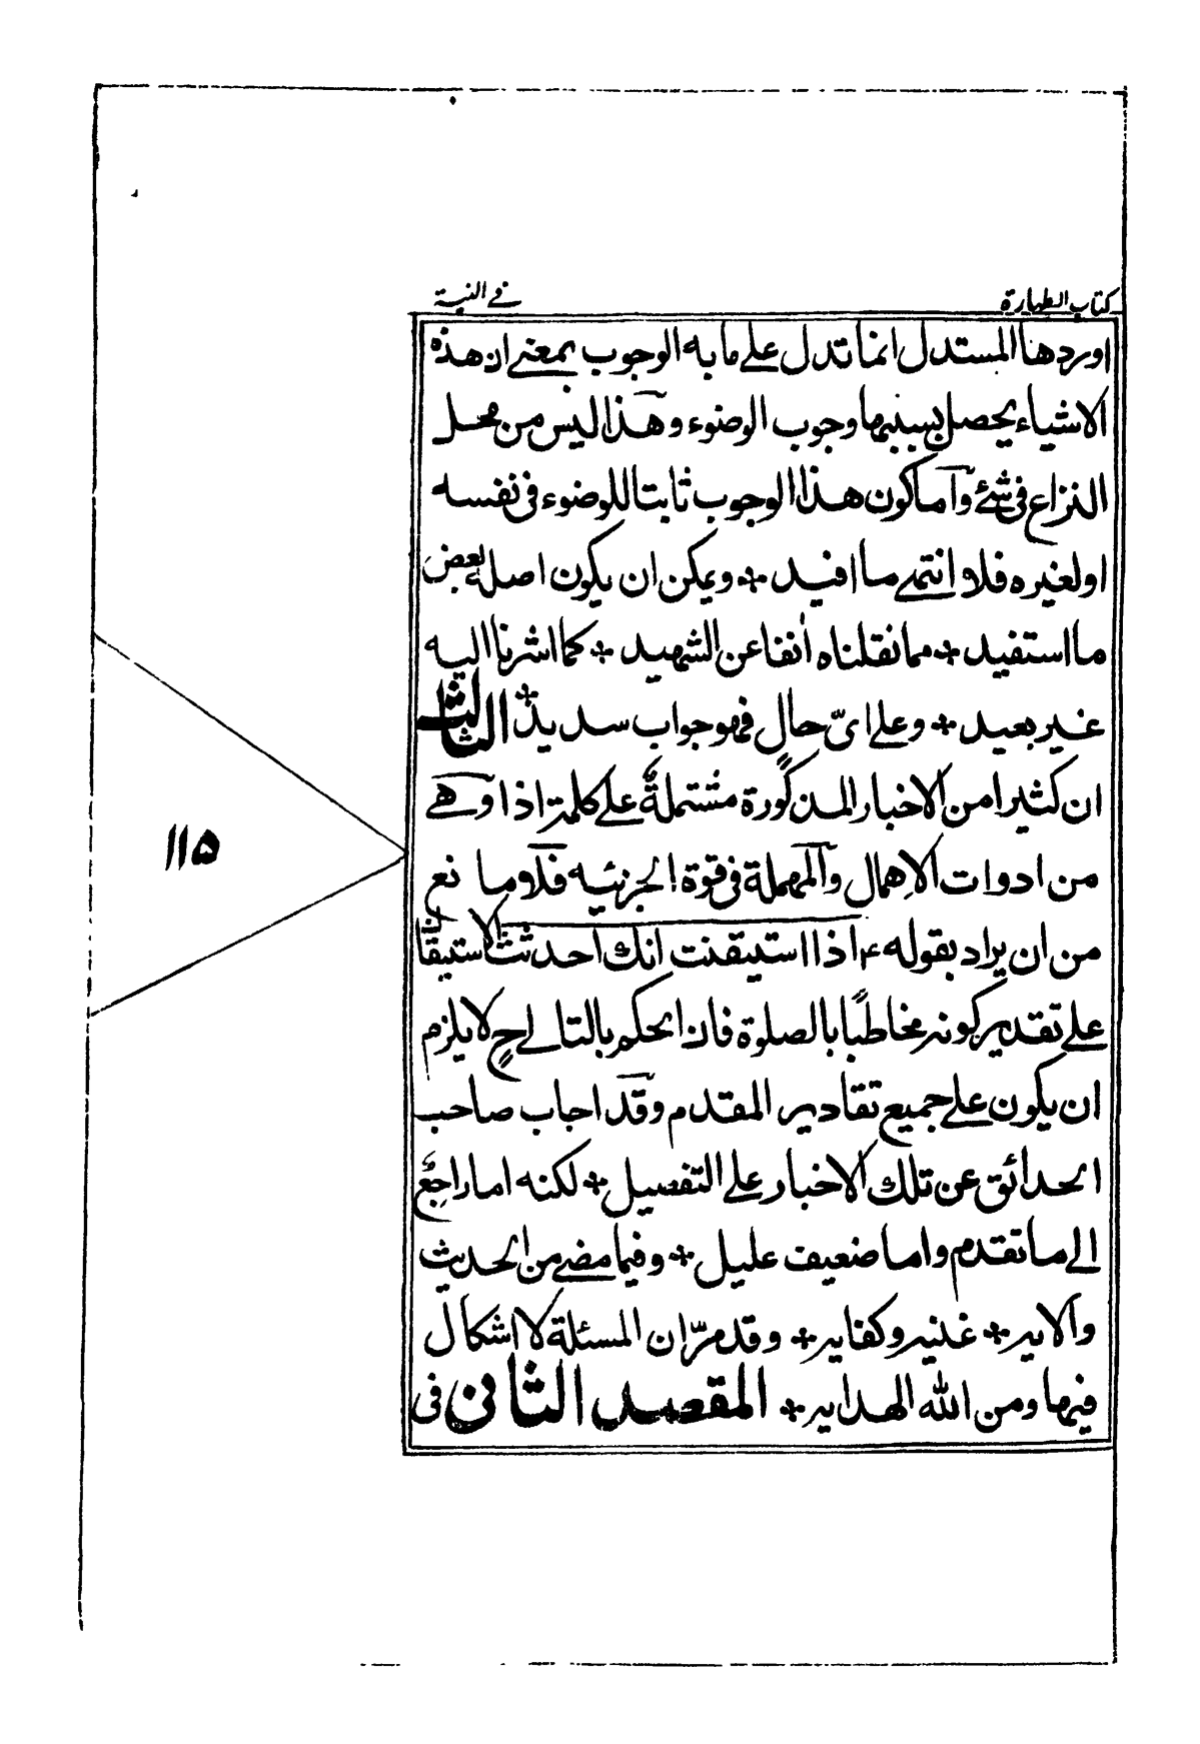 كتاب الطهارة
في النية
اوردها المستدل انما تدل على ما به الوجوب بمعنى ان هذه
الاشياء يحصل بسببها وجوب الوضوء وهذا ليس من محل
النزاع فى شئ واما كون هذا الوجوب ثابتا للوضوء فى نفسه
او لغيره فلا انتهى ما افيد * ويمكن ان يكون اصله بعض
ما استفيد * مما نقلناه انفا عن الشهيد * كما اشرنا اليه
غير بعيد * وعلى اىّ حالٍ فهو جواب سديد * الثالث
ان كثيرا من الاخبار المذكورة مشتملةٌ على كلمة اذا وهى
من ادوات الاِهمال والمهملة فى قوة الجزئيه فلا مانع
من ان يراد بقوله ع اذا استيقنت انك احدثت الاستيقان
على تقدير كونه مخاطبًا بالصلوة فان الحكم بالتالى حٍ لا يلزم
ان يكون على جميع تقادير المقدم وقد اجاب صاحب
الحدائق عن تلك الاخبار على التفصيل * لكنه اما راجِعٌ
الى ما تقدم واما ضعيف عليل * وفيما مضى من الحديث
والايه * غنيه وكفايه * وقد مرّ ان المسئلة لا اشكال
فيها ومن الله الهدايه * المقصد الثانى فى
١١۵